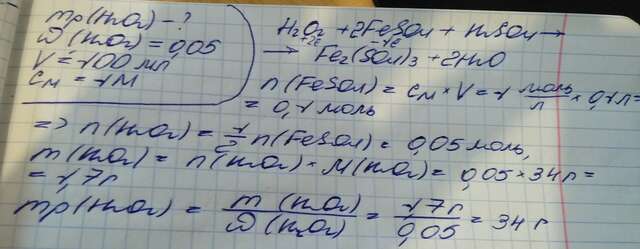 mp(H₂O₂) - ?
ω(H₂O₂) = 0,05
V = 100 мл
Cм = 1M
H₂O₂ + 2FeSO₄ + H₂SO₄ →
+2e -1e
→ Fe₂(SO₄)₃ + 2H₂O
n(FeSO₄) = Cм × V = 1 моль/л × 0,1л =
= 0,1 моль
=> n(H₂O₂) = 1/2 n(FeSO₄) = 0,05 моль,
m(H₂O₂) = n(H₂O₂) · M(H₂O₂) = 0,05 × 34 г =
= 1,7 г
mp(H₂O₂) = m(H₂O₂)/ω(H₂O₂) = 1,7г/0,05 = 34 г